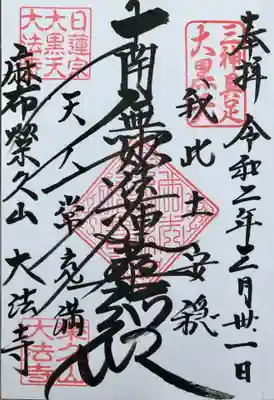 奉拝
令和二年三月卅一日
三神具足
大黒天
我此土安穏
南無妙法蓮華経
天人常充満
日蓮宗
大黒天
大法寺
麻布栄久山
大法寺
栄久山
大法寺